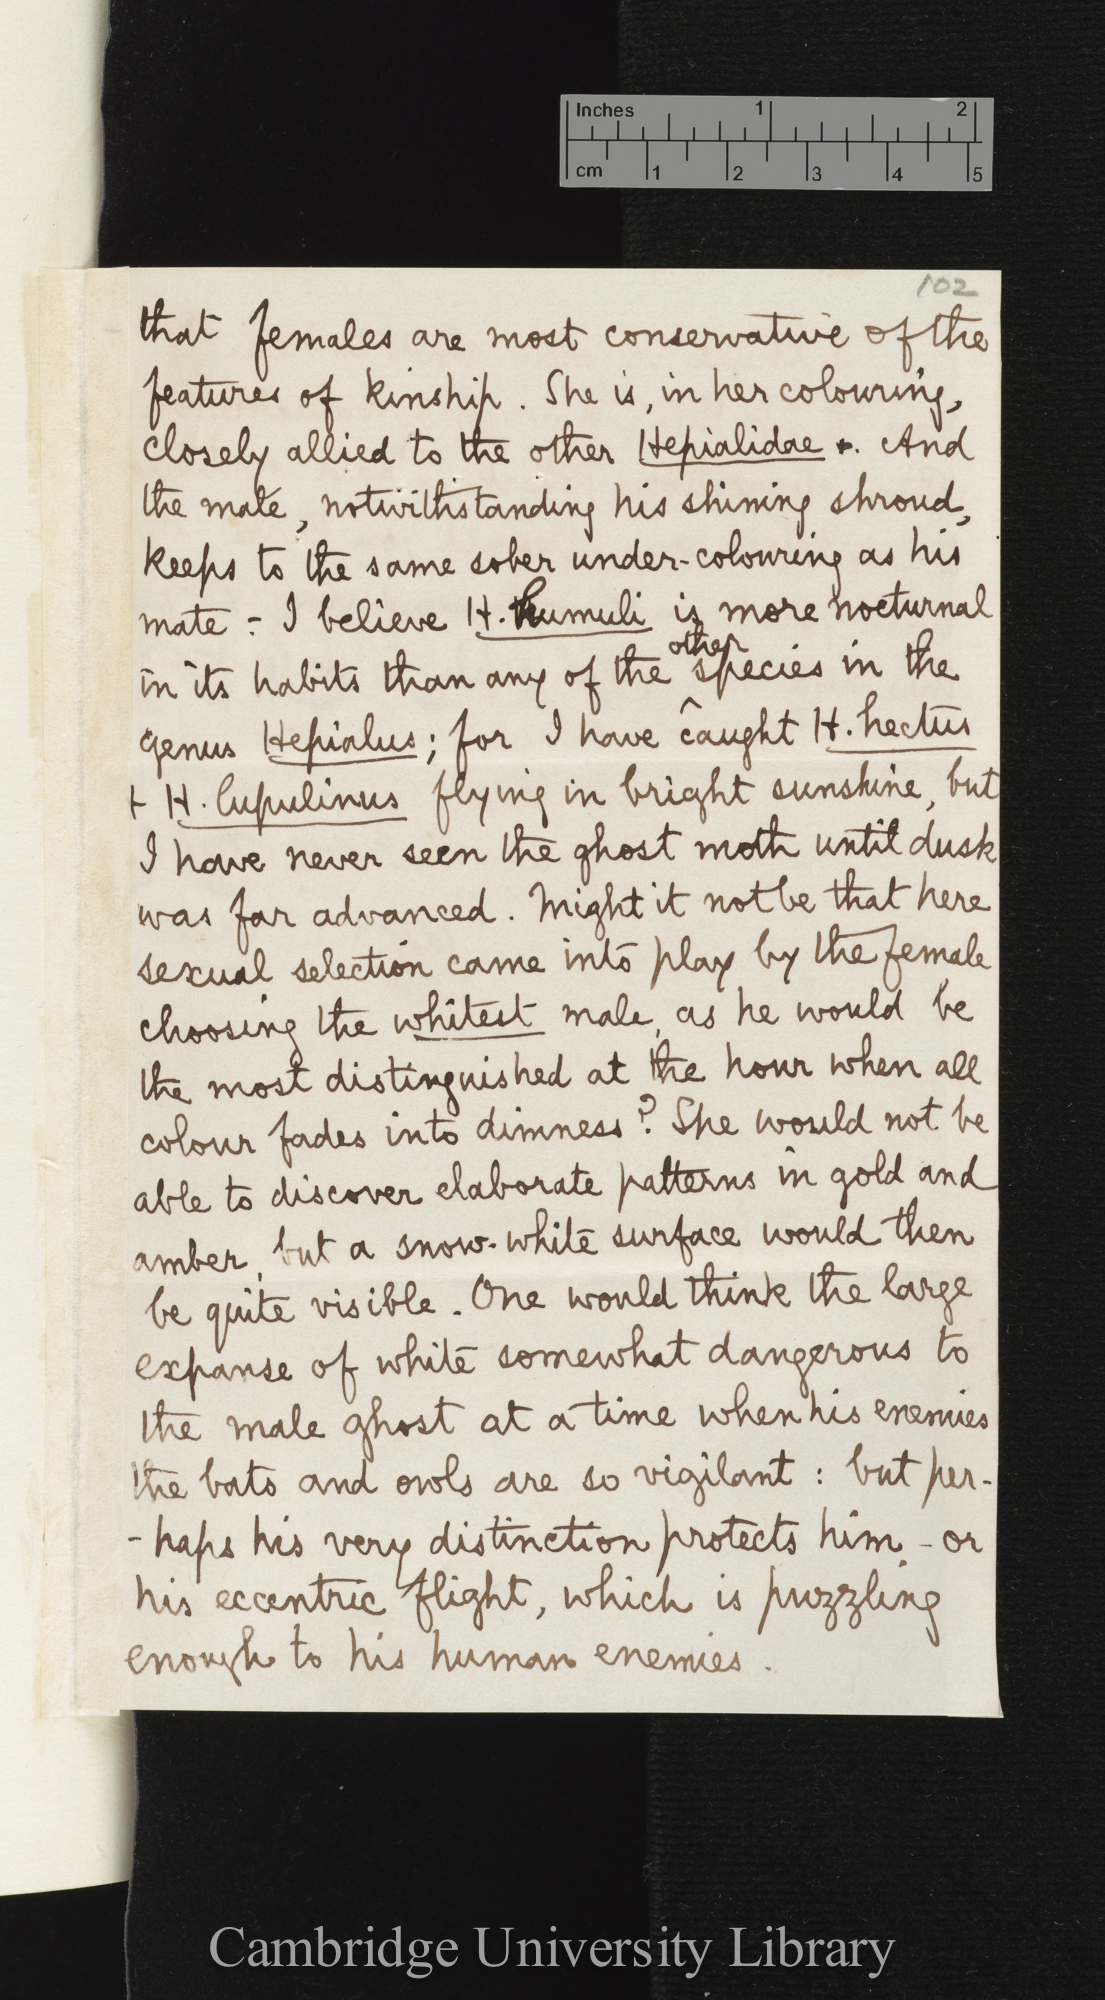 Inches 1 2
cm 1 2 3 4 5
102
that females are most conservative of the
features of kinship. She is, in her colouring,
closely allied to the other Hepialidae. And
the male, notwithstanding his shining shroud,
keeps to the same sober under-colouring as his
mate - I believe H. humuli is more nocturnal
other
in its habits than any of the species in the
genus Hepialus; for I have caught H. hectus
+ H. lupulinus flying in bright sunshine, but
I have never seen the ghost moth until dusk
was far advanced. Might it not be that here
sexual selection came into play by the female
choosing the whitest male, as he would be
the most distinguished at the hour when all
colour fades into dimness? She would not be
able to discover elaborate patterns in gold and
amber, but a snow-white surface would then
be quite visible. One would think the large
expanse of white somewhat dangerous to
the male ghost at a time when his enemies
the bats and owls are so vigilant: but per-
-haps his very distinction protects him - or
his eccentric flight, which is puzzling
enough to his human enemies.
Cambridge University Library